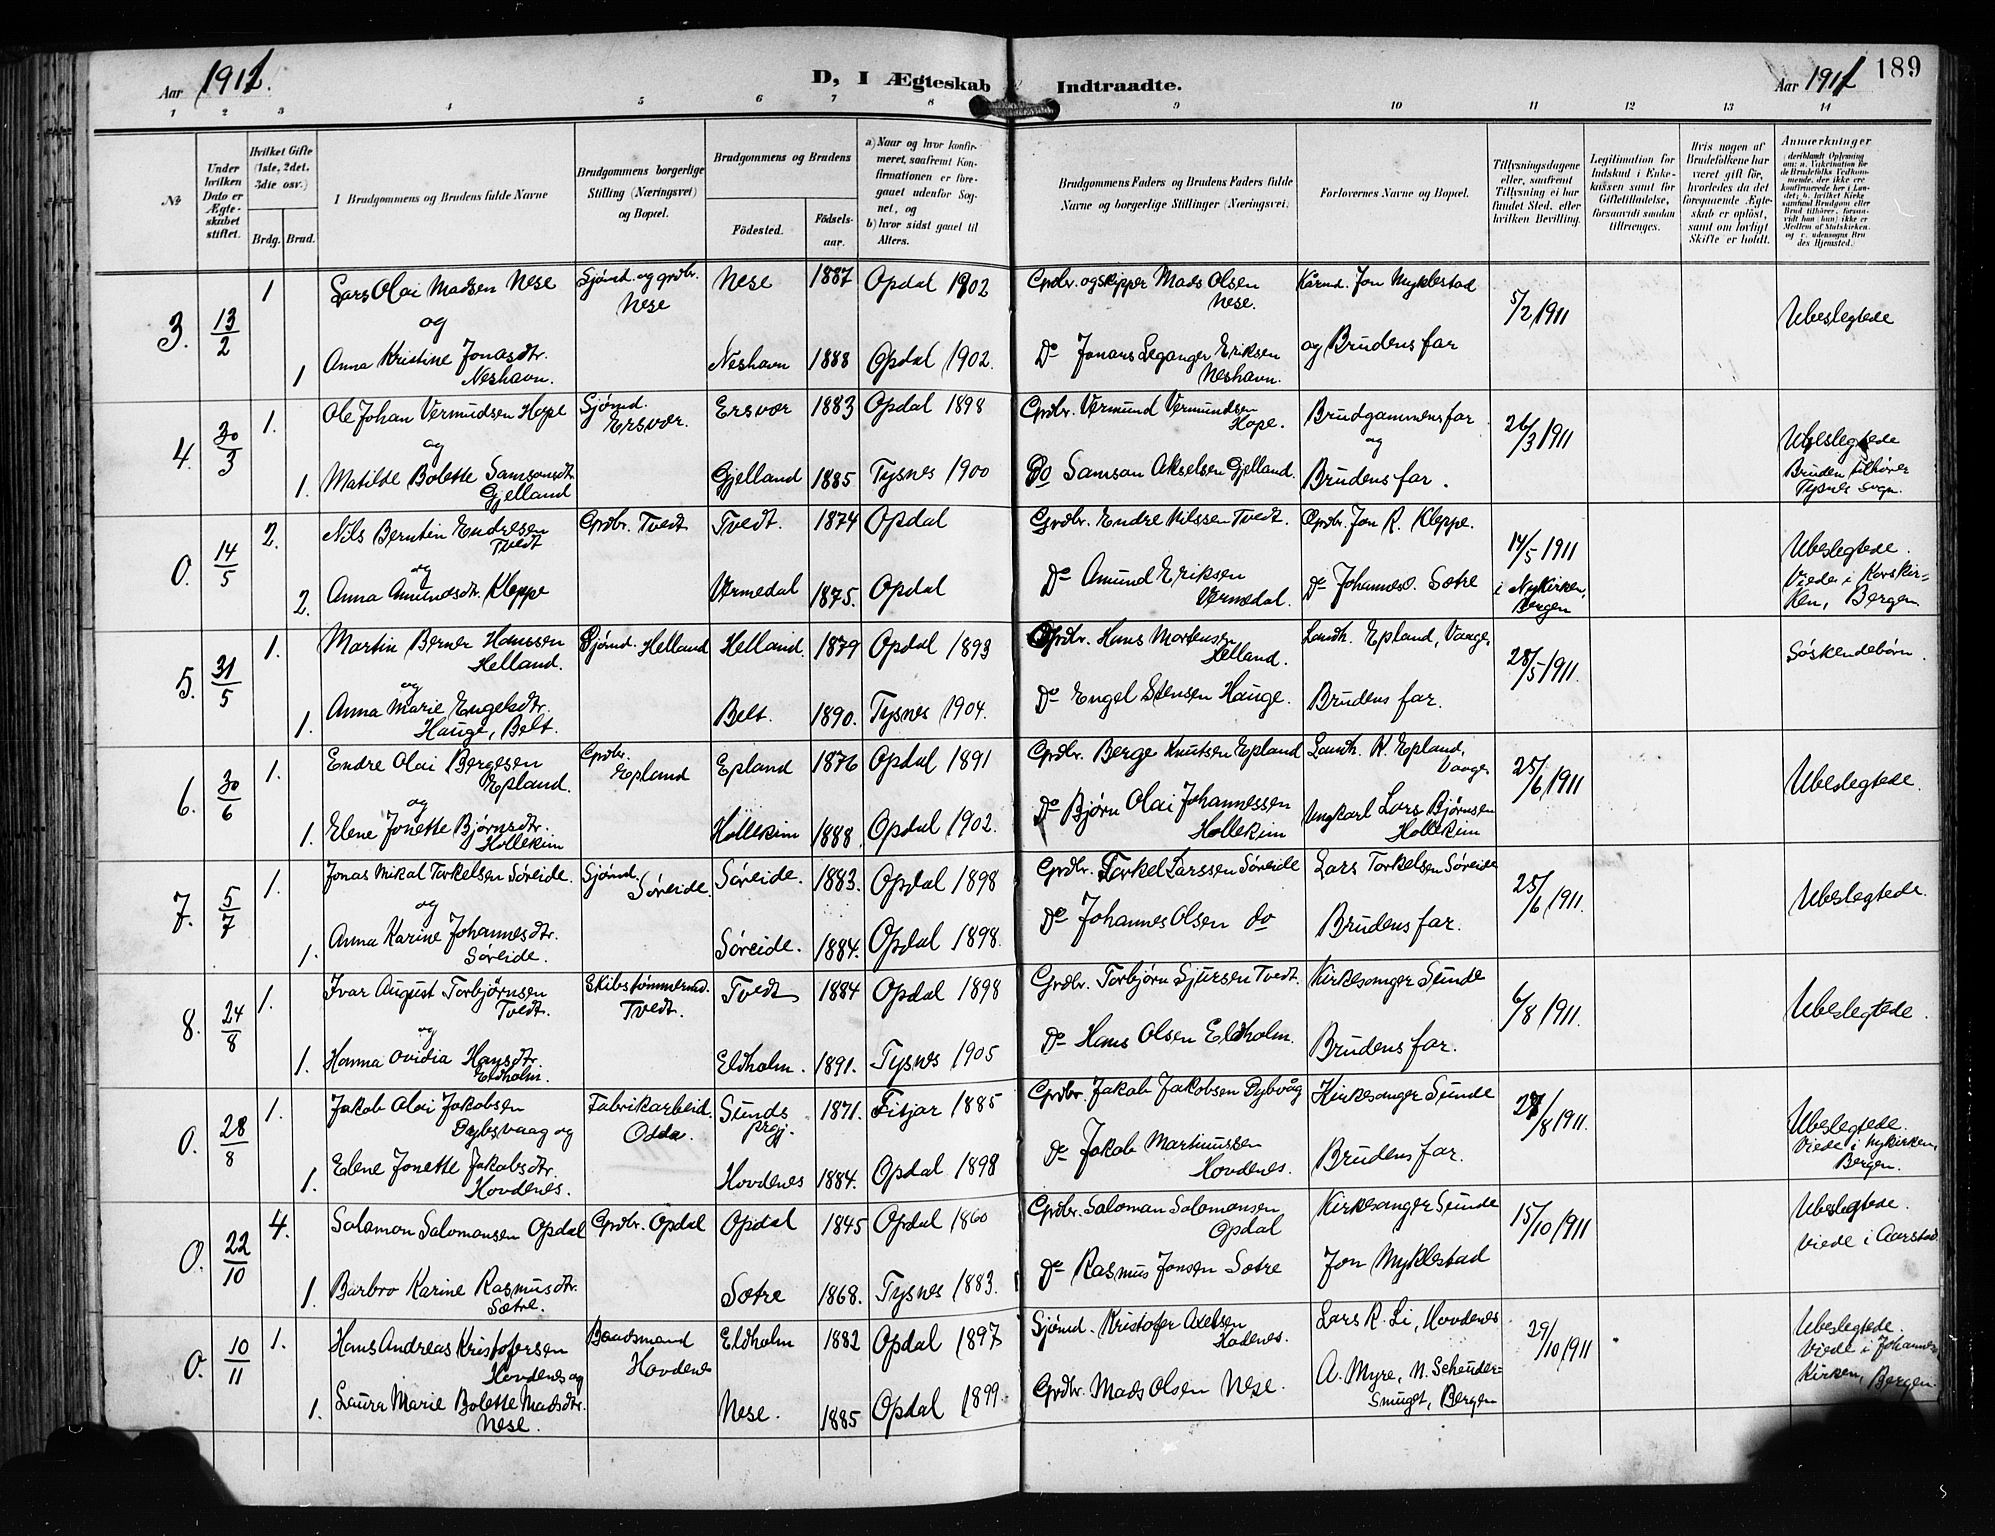 Aar 1911.
D, I Ægteskab Indtraadte.
Aar 1911
189
1 2 3 4 5 6 7 8 9 10 11 12 13 14
№
Under hvilken Dato er Ægteskabet stiftet.
Hvilket Gifte (1ste, 2det, 3die osv.)
Brdg. Brud.
I Brudgommens og Brudens fulde Navne
Brudgommens borgerlige Stilling (Næringsvei) og Bopæl.
Brudgommens og Brudens
Fødested.
Fødselsaar.
a) Naar og hvor konfirmeret, saafremt Konfirmationen er foregaaet udenfor Sognet, og
b) hvor sidst gaaet til Alters.
Brudgommens Faders og Brudens Faders fulde Navne og borgerlige Stillinger (Næringsvei)
Forlovernes Navne og Bopæl.
Tillysningsdagene eller, saafremt Tillysning ei har fundet Sted, efter hvilken Bevilling.
Legitimation for Indskud i Enkekassen samt for Giftetilladelse, forsaavidt saadan tiltrænges.
Hvis nogen af Brudefolkene har været gift før, hvorledes da det foregaaende Ægteskab er opløst, samt om lovligt Skifte er holdt.
Anmærkninger
3. 13/2 1 Lars Olai Madsen Nese Sjømd. og grdbr. Nese Nese 1887 Opdal 1902 Grdbr. og skipper Mads Olsen Nese. Kårmd. Jon Myklestad 5/2 1911 Ubeslegtede
og
1 Anna Kristine Jonasdtr. Neshavn. Neshavn 1888 Opdal 1902. Do Jonars Leganger Eriksen Neshavn. og Brudens far
4. 30/3 1. Ole Johan Vermudsen Hope Sjømd. Ersvær. Ersvær 1883 Opdal 1898 Grdbr. Vermund Vermundsen Hope. Brudgammens far 26/3 1911 Ubeslegtede
og og
1. Matilde Bolette Samsonsdt. Gjelland Gjelland 1885 Tysnes 1900 Do Samson Akselsen Gjelland. Brudens far. Bruden tilhører Tysnes sogn.
0. 14/5 2. Nils Berntin Endresen Tvedt Grdbr. Tvedt Tvedt. 1874 Opdal Grdbr. Endre Nilssen Tvedt. Grdbr. Jon R. Kleppe. 14/5 1911 Ubeslegtede.
og
2. Anna Amundsdtr. Kleppe Vermedal 1875. Opdal Do Amund Eriksen Vermedal. Do Johannes Sætre i Nykirken, Bergen Viede i Korskirken, Bergen
5. 31/5 1. Martin Berner Hanssen Helland. Sjømd. Helland Helland. 1879 Opdal 1893 Grdbr. Hans Mortensen Helland. Landh. Epland, Vaage. 28/5 1911. Søskendebørn.
og
1. Anna Marie Engelsdtr. Hauge, Belt. Belt. 1890. Tysnes 1904. Do Engel Stensen Hauge. Brudens far.
6. 30/6 1. Endre Olai Bergesen Epland. Grdbr. Epland Epland 1876 Opdal 1891 Grdbr. Berge Knutsen Epland Landh. R. Epland, Vaage 25/6 1911 Ubeslegtede.
og
1. Elene Jonette Bjørnsdtr. Hollekim Hollekim 1888. Opdal 1902. Do Bjørn Olai Johannessen Hollekim Ungkarl Lars Bjørnsen Hollekim
7. 5/7 1. Jonas Mikal Torkelsen Søreide. Sjømd. Søreide Søreide. 1883. Opdal 1898 Grdbr. Torkel Larssen Søreide Lars Torkelsen Søreide 25/6 1911. Ubeslegtede.
og
1. Anna Karine Johannesdtr. Søreide. Søreide. 1884. Opdal 1898. Do Johannes Olsen do Brudens far.
8. 24/8 1. Ivar August Torbjørnsen Tvedt. Skibstømmermd. Tvedt. Tvedt 1884 Opdal 1898 Grdbr. Torbjørn Sjursen Tvedt. Kirkesanger Sunde 6/8 1911. Ubeslegtede.
og
1. Hanna Ovidia Hansdtr. Eldholm. Eldholm. 1891. Tysnes 1905 Do Hans Olsen Eldholm. Brudens far.
0. 28/8 1. Jakob Olai Jakobsen Dybsvaag og Fabrikarbeid. Odda. Sunds prgj. 1871. Fitjar 1885 Grdbr. Jakob Jakobsen Dybvåg Kirkesanger Sunde 27/8 1911. Ubeslegtede.
1. Elene Jonette Jakobsdtr. Hovdenes. Hovdenes 1884. Opdal 1898 Do Jakob Martinussen Hovdenes. Brudens far. Viede i Nykirken, Bergen.
0. 22/10 4. Salamon Salomonsen Opdal Grdbr. Opdal Opdal 1845 Opdal 1860 Grdbr. Saloman Salomonsen Opdal Kirkesanger Sunde 15/10 1911 Ubeslegtede.
1. Barbro Karine Rasmusdtr. Sætre. Sætre 1868. Tysnes 1883. Do Rasmus Jonsen Sætre Jon Myklestad Viede i Aarstad.
0. 10/11 1. Hans Andreas Kristofersen Hovdenes og Baadsmand Hovdenes Eldholm 1882 Opdal 1897 Sjømd. Kristofer Axelsen Hodenes. Lars R. Li, Hovdenes 29/10 1911 Ubeslegtede.
1. Laura Marie Bolette Madsdtr. Nese. Nese. 1885 Opdal 1899. Grdbr. Mads Olsen Nese. A. Myre, N. Scheudersmuget, Bergen Viede i Johanneskirken, Bergen.